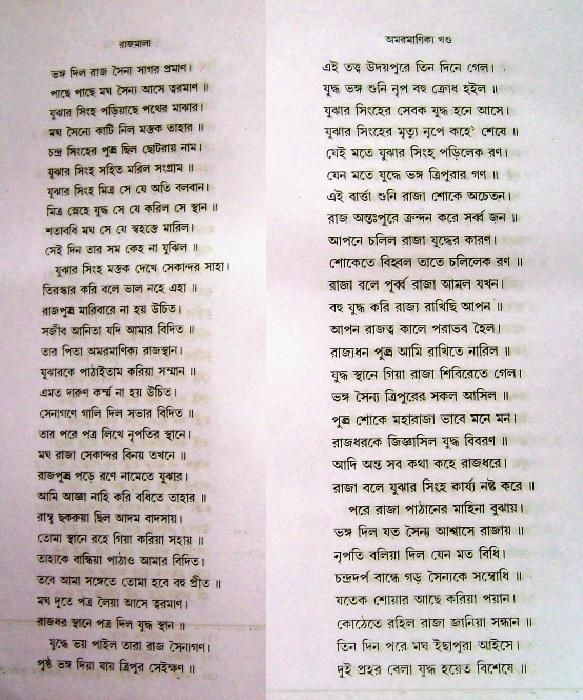 রাজমালা
ভঙ্গ দিল রাজ সৈন্য সাগর প্রমাণ।
পাছে পাছে মঘ সৈন্য আসে ত্বরমাণ ॥
যুঝার সিংহ পড়িয়াছে পথের মাঝার।
মঘ সৈন্যে কাটি নিল মস্তক তাহার ॥
চন্দ্র সিংহের পুত্র ছিল ছোটরায় নাম।
যুঝার সিংহ সহিত মরিল সংগ্রাম ॥
যুঝার সিংহ মিত্র সে যে অতি বলবান।
মিত্র স্নেহে যুদ্ধ সে যে করিল সে স্থান ॥
শতাবধি মঘ সে যে স্বহস্তে মারিল।
সেই দিন তার সম কেহ না যুঝিল ॥
যুঝার সিংহ মস্তক দেখে সেকান্দর সাহা।
তিরস্কার করি বলে ভাল নহে এহা ॥
রাজপুত্র মারিবারে না হয় উচিত।
সজীব আনিতা যদি আমার বিদিত ॥
তার পিতা অমরমাণিক্য রাজস্থান।
যুঝারকে পাঠাইতাম করিয়া সম্মান ॥
এমত দারুণ কর্ম্ম না হয় উচিত।
সেনাগণে গালি দিল সভার বিদিত ॥
তার পরে পত্র লিখে নৃপতির স্থানে।
মঘ রাজা সেকান্দর বিনয় তখনে ॥
রাজপুত্র পড়ে রণে নামেতে যুঝার।
আমি আজ্ঞা নাহি করি বধিতে তাহার ॥
রাম্বু ছকরুয়া ছিল আদম বাদসায়।
তোমা স্থানে রহে গিয়া করিয়া সহায় ॥
তাহাকে বান্ধিয়া পাঠাও আমার বিদিত।
তবে আমা সঙ্গেতে তোমা হবে বহু প্রীত ॥
মঘ দূতে পত্র লৈয়া আসে ত্বরমাণ।
রাজধর স্থানে পত্র দিল যুদ্ধ স্থান ॥
যুদ্ধে ভয় পাইল তারা রাজ সৈন্যগণ।
পৃষ্ঠ ভঙ্গ দিয়া যায় ত্রিপুর সেইক্ষণ ॥
অমরমাণিক্য খণ্ড
এই তত্ত্ব উদয়পুরে তিন দিনে গেল।
যুদ্ধ ভঙ্গ শুনি নৃপ বহু ক্রোধ হইল ॥
যুঝার সিংহের সেবক যুদ্ধ হনে আসে।
যুঝার সিংহের মৃত্যু নৃপে কহে শেষে ॥
যেই মতে যুঝার সিংহ পড়িলেক রণ।
যেন মতে যুদ্ধে ভঙ্গ ত্রিপুরার গণ ॥
এই বার্ত্তা শুনি রাজা শোকে অচেতন।
রাজ অন্তঃপুরে ক্রন্দন করে সর্ব্ব জন ॥
আপনে চলিল রাজা যুদ্ধের কারণ।
শোকেতে বিহ্বল তাতে চলিলেক রণ ॥
রাজা বলে পূর্ব্ব রাজা আমল যখন।
বহু যুদ্ধ করি রাজ্য রাখিছি আপন ॥
আপন রাজত্ব কালে পরাভব হৈল।
রাজ্যধন পুত্র আমি রাখিতে নারিল ॥
যুদ্ধ স্থানে গিয়া রাজা শিবিরেতে গেল।
ভঙ্গ সৈন্য ত্রিপুরের সকল আসিল ॥
পুত্র শোকে মহারাজা ভাবে মনে মন।
রাজধরকে জিজ্ঞাসিল যুদ্ধ বিবরণ ॥
আদি অন্ত সব কথা কহে রাজধরে।
রাজা বলে যুঝার সিংহ কার্য্য নষ্ট করে ॥
পরে রাজা পাঠানের মাহিনা বুঝায়।
ভঙ্গ দিল যত সৈন্য আশ্বাসে রাজায় ॥
নৃপতি বলিয়া দিল যেন মত বিধি।
চন্দ্রদর্প বান্ধে গড় সৈন্যকে সম্বোধি ॥
যতেক শোয়ার আছে করিয়া পয়ান।
কোঠেতে রহিল রাজা জানিয়া সন্ধান ॥
তিন দিন পরে মঘ ইছাপুরা আইসে।
দুই প্রহর বেলা যুদ্ধ হয়েত বিশেষে ॥